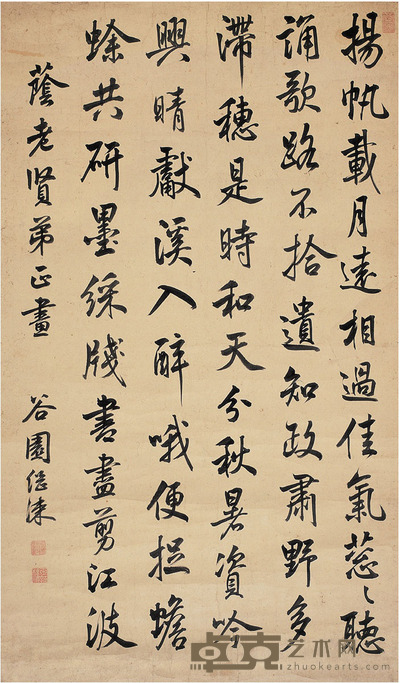 揚帆載月遠相過佳氣蔥〻聽
誦歌路不拾遺知政肅野多
滯穗是時和天分秋暑資吟
興晴獻溪入醉哦便捉蟾
蜍共研墨綵牋書盡剪江波
蔭老賢弟正畫
谷園繼涑
卓克艺术网
zhuokearts.com